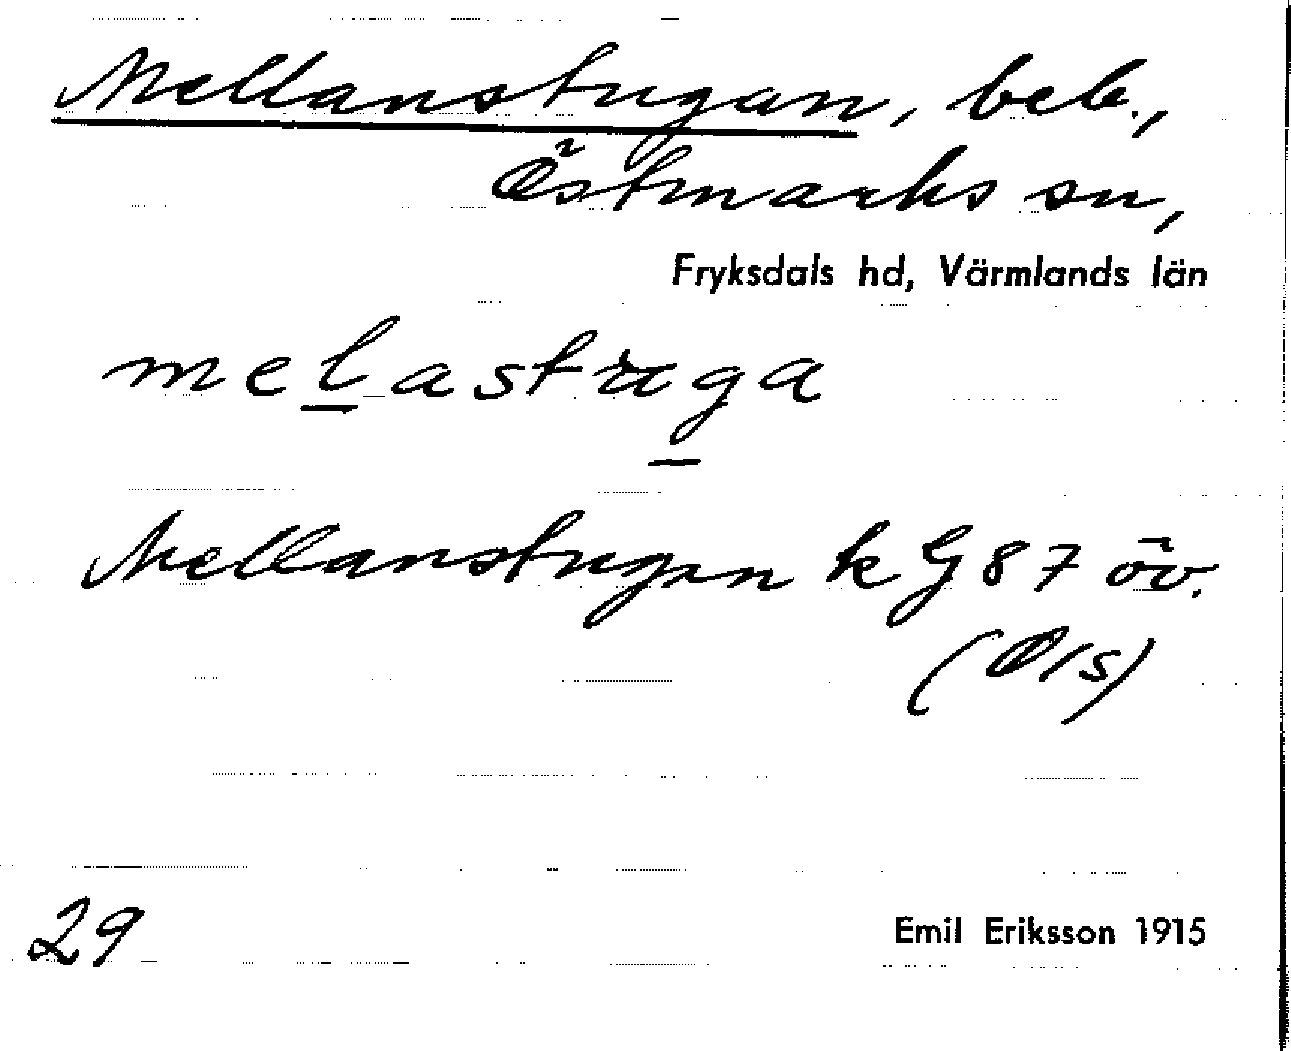 Mellanstugan, beb.,
Östmarks sn,
Fryksdals hd, Värmlands län
melastuga
Mellanstugan k G 87 öv.
(O/s)
29
Emil Eriksson 1915